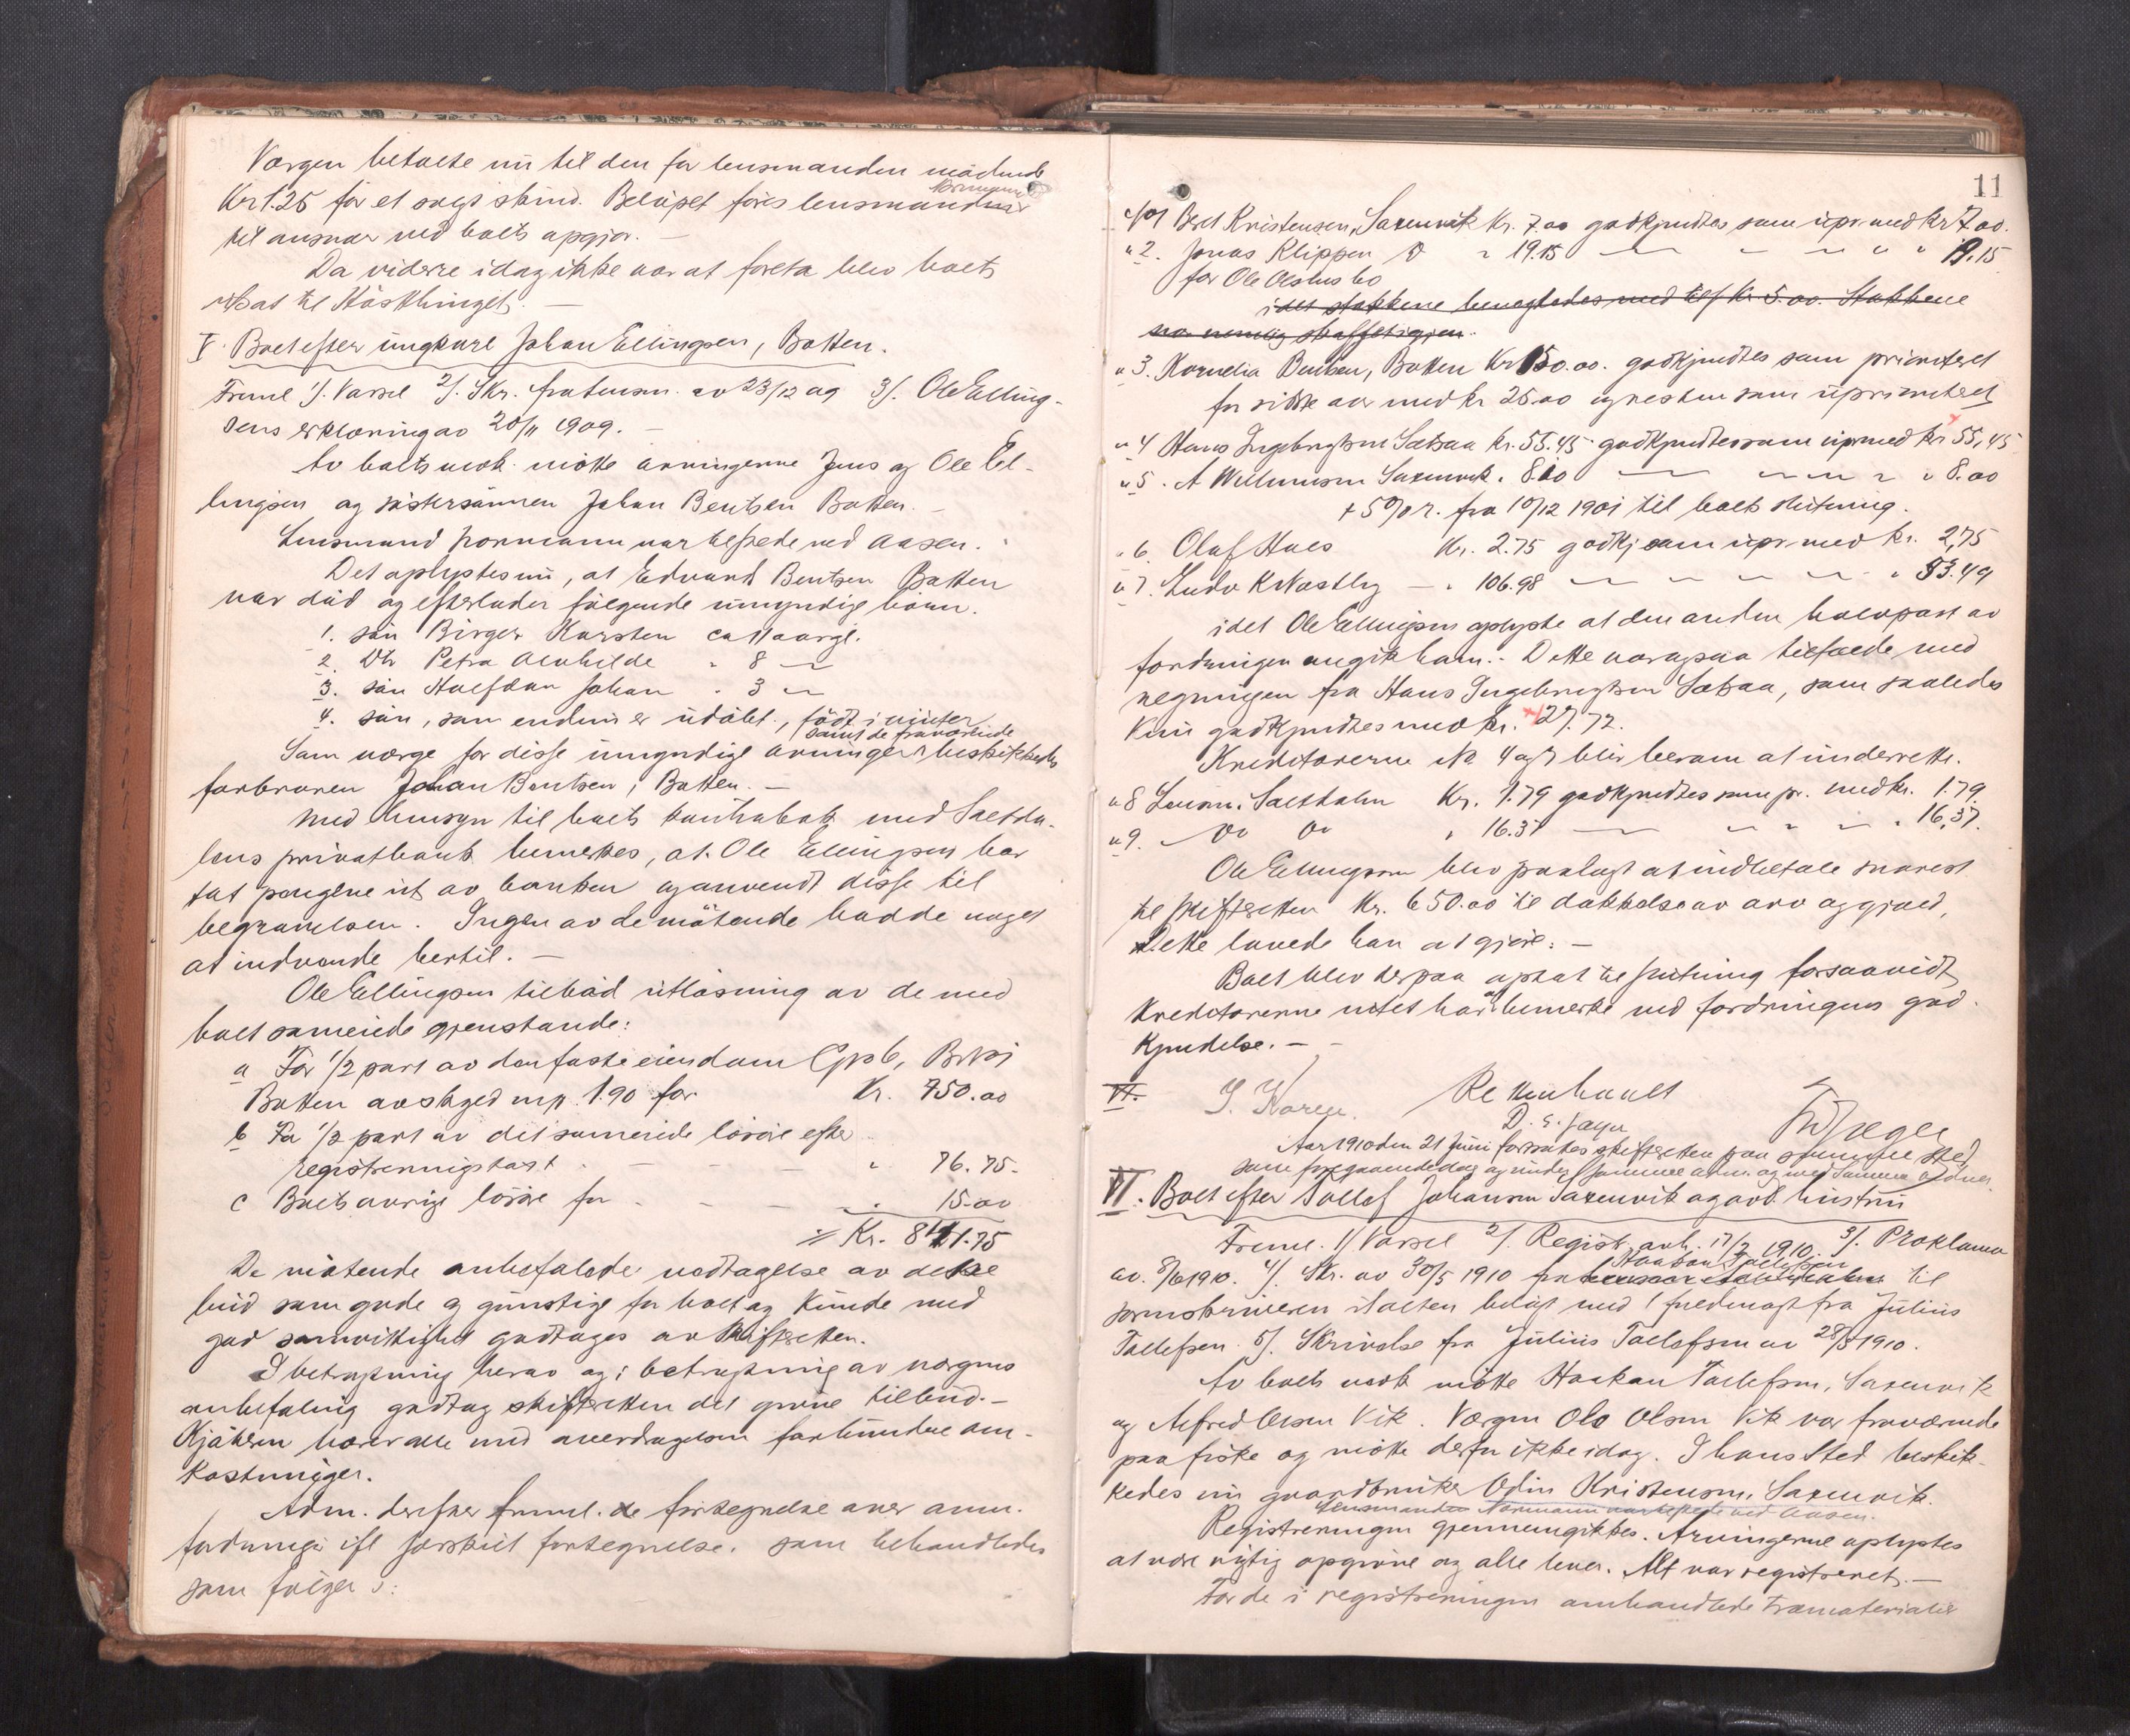 Værgen betalte nu til den for lensmanden mødende
Normann
Kr 1.25 for et solgt skind. Beløpet føres lensmanden
til ansvar ved boets opgjør. —
Da videre idag ikke var at foreta blev boet
utsat til Høsttinget. —
V. Boet efter ungkarl Johan Ellingsen, Botten.
Freml 1). Varsel 2). Skr. fra lensm. av 23/12 og 3). Ole Elling-
sens erklæring av 20/11 1909. —
Av boets vedk. møtte arvingerne Jens og Ole El-
lingsen og søstersønnen Johan Bentsen Botten. —
Lensmand Normann var tilstede ved Aasen.
Det oplystes nu, at Edvard Bentsen Botten
var død og efterlader følgende umyndige børn.
1. søn Birger Karsten ca 11 aar gl.
2. Dtr Petra Alvhilde " 8 —
3. søn Halfdan Johan " 3 —
4. søn, som endnu er udøbt, født i vinter
samt de fraværende
Som værge for disse umyndige arvinger beskikkedes
farbroren Johan Bentsen, Botten. —
Med hensyn til boets kontrabok med Saltda-
lens privatbank bemerkes, at Ole Ellingsen har
tat pengene ut av banken og anvendt disse til
begravelsen. Ingen av de møtende hadde noget
at indvende hertil. —
Ole Ellingsen tilbød utløsning av de med
boet sameiede gjenstande:
a For 1/2 part av den faste eiendom Gno 6, Brno 1
Botten av skyld mrk. 1.90 for Kr. 750.00
b For 1/2 part av det sameiede løsøre efter
registreringstakst . — — — " 76.75 -
c Boets øvrige løsøre for . — — " 15.00
= Kr. 841.75
De møtende anbefalede vedtagelse av dette
bud som gode og gunstige for boet og kunde med
god samvittighet godtages av skifteretten.
I betragtning herav og i betragtning av værgens
anbefaling godtog skifteretten det givne tilbud. —
Kjøberen bærer alle med overdragelsen forbundne om-
kostninger.
Adm. derefter freml. de fortegnelse over anm.
fordringer ifl særskilt fortegnelse. som behandledes
som følger:
11
No 1 Berl Kristensen, Saxenvik Kr. 7.00 godkjendtes som upr. med kr 7.00.
" 2. Jonas Klippen " 19.15 — — — " " 19.15
for Ole Olsens bo
idet stakkene
" 3. Kornelia Bentsen, Botten Kr 150.00. godkjendtes som prioritert
for siste aar med kr 25.00 og resten som uprioritert
" 4 Hans Ingebrigtsen Sætsaa kr. 55.45 godkjendtes som upr med kr 55,45
" 5. A Willumsen Saxenvik " 8.00 — — — " 8.00
+ 5% r. fra 10/12 1901 til boets slutning.
" 6 Olaf Hals Kr. 2.75 godkj som upr med kr. 2,75
" 7. Ludv K Nestby — " 106.98 — — — — " 53.49
idet Ole Ellingsen oplyste at den anden halvpart av
fordringen angik ham. - Dette var ogsaa tilfælde med
regningen fra Hans Ingebrigtsen Sætsaa, som saaledes
kun godkjendtes med kr. 27.72.
Kreditorerne No 4 og 7 blir herom at underrette.
" 8 Lensm. i Saltdalen Kr. 1.79 godkjendtes som pr. med kr. 1.79
" 9. — Do Do " 16.37 — — — — " 16,37.
Ole Ellingsen blev paalagt at indbetale snarest
til skifteretten Kr. 650.00 til dækkelse av arv og gjæld,
Dette lovede han at gjøre: —
Boet blev derpaa optat til slutning forsaavidt
kreditorerne intet har at bemerke ved fordringens god-
kjendelse. —
VI. Retten hævet
Aar 1910 den 21 Juni fortsattes skifteretten paa samme sted
som foregaaende dag og under samme adm. og med samme vidner.
VI. Boet efter Tollef Johansen Saxenvik og avd. hustru
Freml. 1) Varsel 2). Registr. avh. 17/2 1910. 3). Proklama
Haakon Tollefsen
av. 8/6 1910. 4). Skr. av 30/5 1910 fra til
sorenskriveren i Salten bilagt med 1 fuldmagt fra Julius
Tollefsen. 5). Skrivelse fra Julius Tollefsen av 28/5 1910.
Av boets vedk møtte Haakon Tollefsen, Saxenvik
og Alfred Olsen Vik. Værgen Ole Olsen Vik var fraværende
paa fiske og møtte derfor ikke idag. I hans sted beskik-
kedes nu gaardbruker Odin Kristensen, Saxenvik.
Lensmanden Normann var tilstede ved Aasen.
Registreringen gjennemgikkes. Arvingerne oplystes
at være rigtig opgivne og alle lever. Alt var registreret. —
For de i registreringen omhandlede træmaterialer